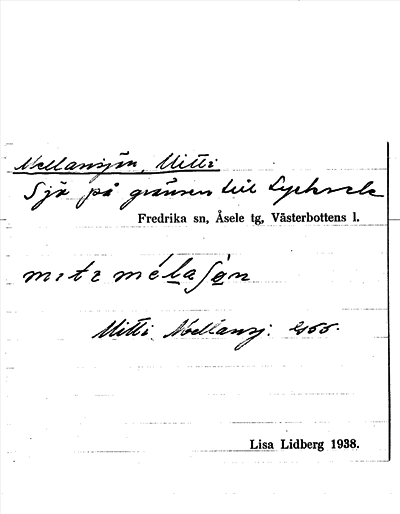 Mellansjön, Mitti
Sjö på gränsen till Lycksele
Fredrika sn, Åsele tg, Västerbottens l.
Mitti Mellansj.
Lisa Lidberg 1938.